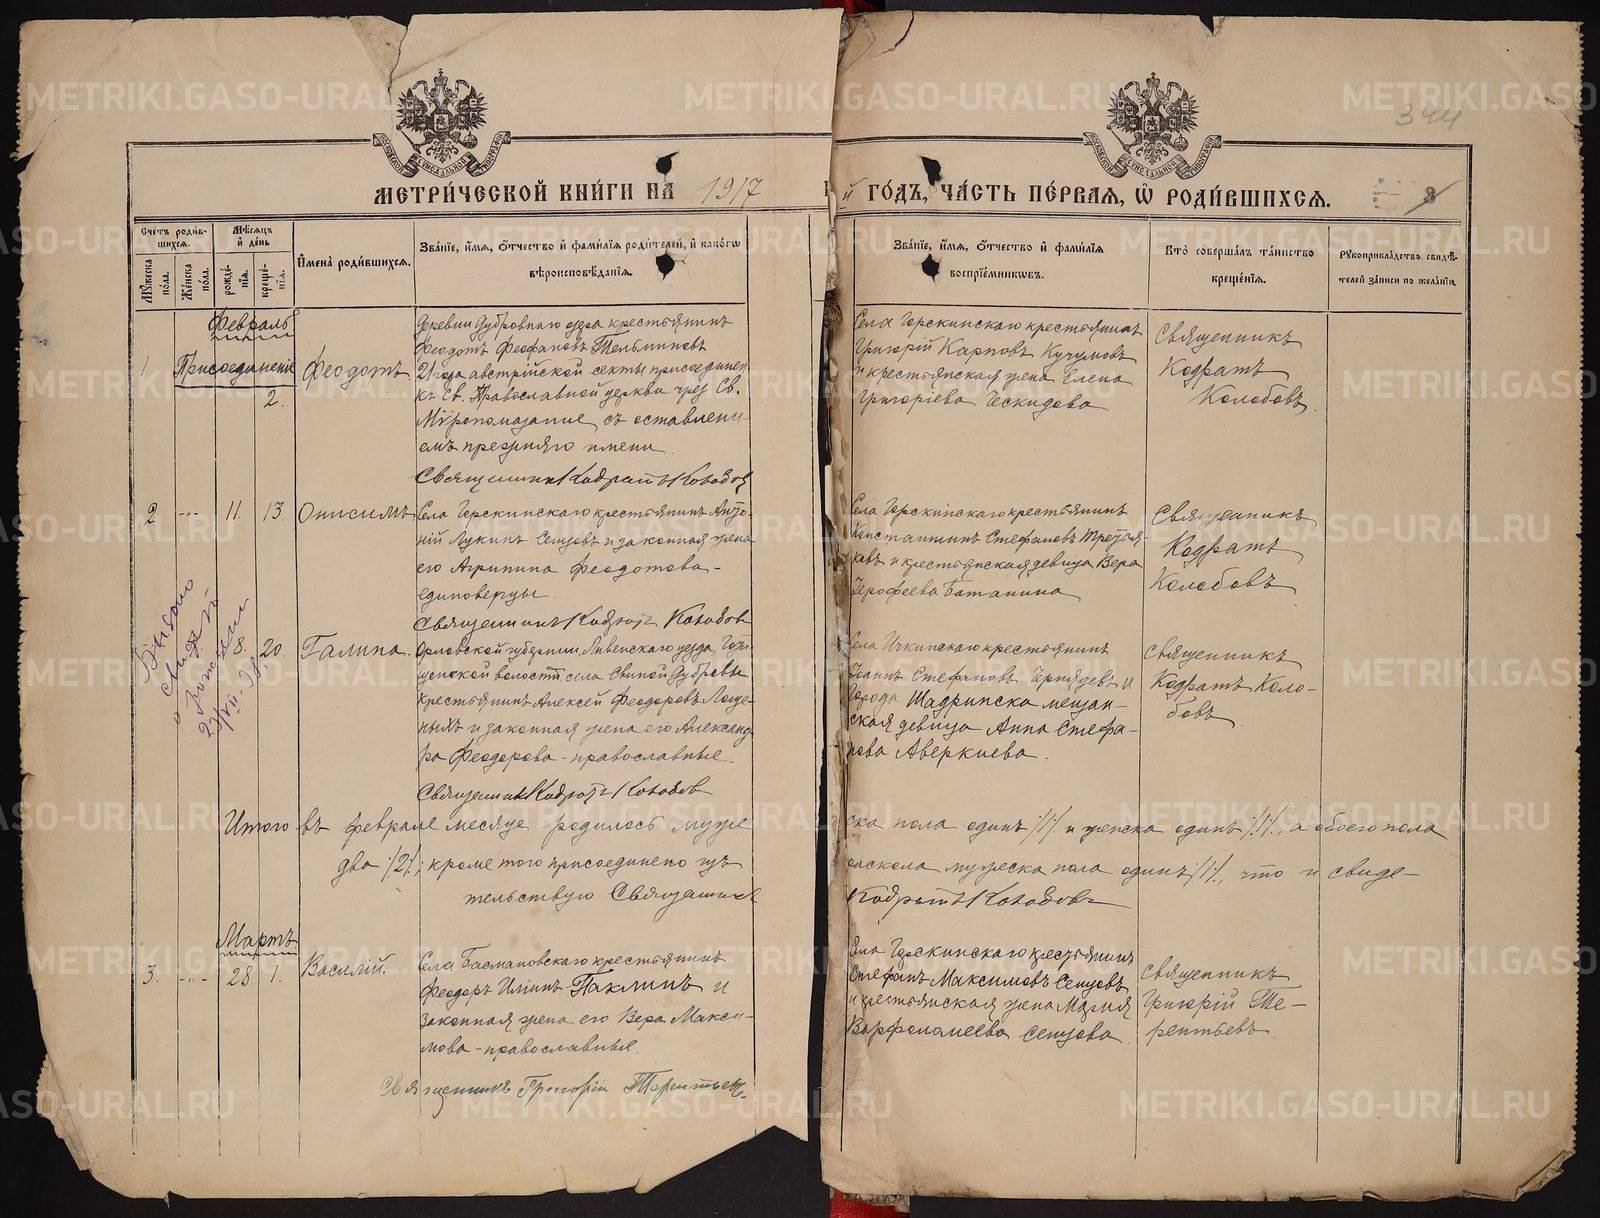 344
МЕТРИ́ЧЕСКОЙ КНИ́ГИ НА̀ 1917 й ГО́ДЪ, ЧА́СТЬ ПЕ́РВАЯ, Ѽ РОДИ́ВШИХСЯ.
Счетъ роди́вшихся.
Мꙋжеска по́ла.
Же́нска по́ла.
Мѣ́сяцъ и҆ де́нь
рожде́нїя.
креще́нїя.
И҆мена̀ роди́вшихся.
Зва́нїе, и҆́мя, ѻ҆́тчество и҆ фами́лїя роди́телей, и҆ како́гѡ
вѣроисповѣ́данїя.
Зва́нїе, и҆́мя, ѻ҆́тчество и҆ фами́лїя
воспрїе́мникѡвъ.
Кто̀ соверша́лъ та́инство
креще́нїя.
Рꙋкоприкла́дство свидѣ́телей за́писи по жела́нїю
Февраль
1 Присоединенiе
2.
Феодотъ
Деревни Дубровнаго озера крестьянинъ
Феодотъ Феофановъ Тельминовъ
21 года австрiйской секты присоединен
къ Св. Православной церкви чрез Св.
Мѵропомазание съ оставлени-
емъ прежняго имени.
Священник Кодратъ Колобов
Григорiй Карповъ Кучумовъ
и крестьянская жена Елена
Григорiева Ческидова
Священникъ
Кодратъ
Колобовъ.
2 -- 11. 13. Онисимъ
Лукинъ Сенцовъ и законная жена
его Агрипина Феодотова -
единоверцы.
Священникъ Кодратъ Колобов
Константинъ Стефановъ Третья
ковъ и крестьянская девица Вера
Ерофеева Батанина
Священникъ
Кодратъ
Колобовъ
8. 20. Галина.
Орловской губернии, Ливенскаго уезда,
волости, села Свиной Дубравы
крестьянинъ Алексей Феодоровъ
и законная жена его Александ
ра Феодорова - православные.
Священник Кодратъ Колобов
Села Ичкинскаго крестьянинъ
Iоаннъ Стефановъ и
Города Шадринска мещан-
ская девица Анна Стефа-
нова Аверкиева.
Священникъ
Кодратъ Коло-
бовъ
Выдано
свид.
о рождении
Итого въ феврале месяце родилось муже
ска пола одинъ /1/ и женска одинъ /1/, а обоего пола
два /2/; кроме того присоединено изъ
раскола мужеска пола одинъ /1/, что и свиде-
тельствую Священник
Кодратъ Колобовъ
Мартъ
3. -- 28. 1. Василiй.
Села Басмановскаго крестьянинъ
Феодоръ Паклинъ и
законная жена его Вера Макси-
мова - православные.
Священникъ Григорiй Терентьев.
Стефанъ Максимовъ Сенцовъ
и крестьянская жена Мария
Варфоломеева Сенцова.
Священникъ
Григорiй Те-
рентьевъ
METRIKI.GASO-URAL.RU